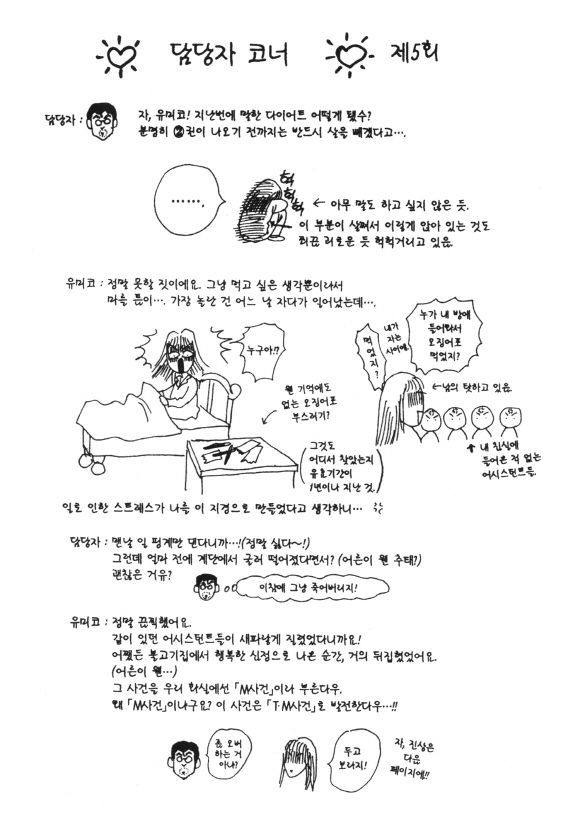 담당자 코너 제5회
담당자 : 자, 유미코! 지난번에 말한 다이어트 어떻게 됐수?
분명히 ②권이 나오기 전까지는 반드시 살을 빼겠다고….
…….
헉
헉
헉
← 아무 말도 하고 싶지 않은 듯.
이 부분이 살쪄서 이렇게 앉아 있는 것도
듯 헉헉거리고 있음.
유미코 : 정말 못할 짓이에요. 그냥 먹고 싶은 생각뿐이라서
마을 틈이…. 가장 놀란 건 어느 날 자다가 일어났는데….
누구야!!
웬 기억에도
없는 오징어포
부스러기?
그것도
어디서 찾았는지
유효기간이
1년이나 지난 것.
누가 내 방에
들어와서
오징어포
먹었지?
내가
자는
사이에
먹었지?
←남의 탓하고 있음.
↑ 내 침실에
들어온 적 없는
어시스턴트들.
일로 인한 스트레스가 나를 이 지경으로 만들었다고 생각하니…
담당자 : 맨날 일 핑계만 댄다니까…!(정말 싫다~!)
그런데 얼마 전에 계단에서 굴러 떨어졌다면서? (어른이 웬 추태?)
괜찮은 거유?
이참에 그냥 죽어버리지!
유미코 : 정말 끔찍했어요.
같이 있던 어시스턴트들이 새파랗게 질렸었다니까요!
어쨌든 불고기집에서 행복한 심정으로 나온 순간, 거의 뒤집혔었어요.
(어른이 웬…)
그 사건을 우리 화실에선 「M사건」이라 부른다우.
왜 「M사건」이냐구요? 이 사건은 「T·M사건」로 발전한다우…!!
좀 오버
하는 거
아냐?
두고
보라지!
자, 진상은
다음
페이지에!!